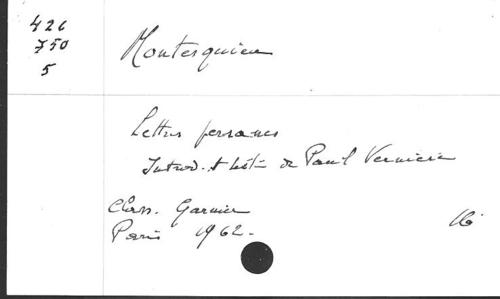 426
750
5
Montesquieu
Lettres persanes
Introd. & de Paul Vernière
Class. Garnier
Paris 1962.
16°